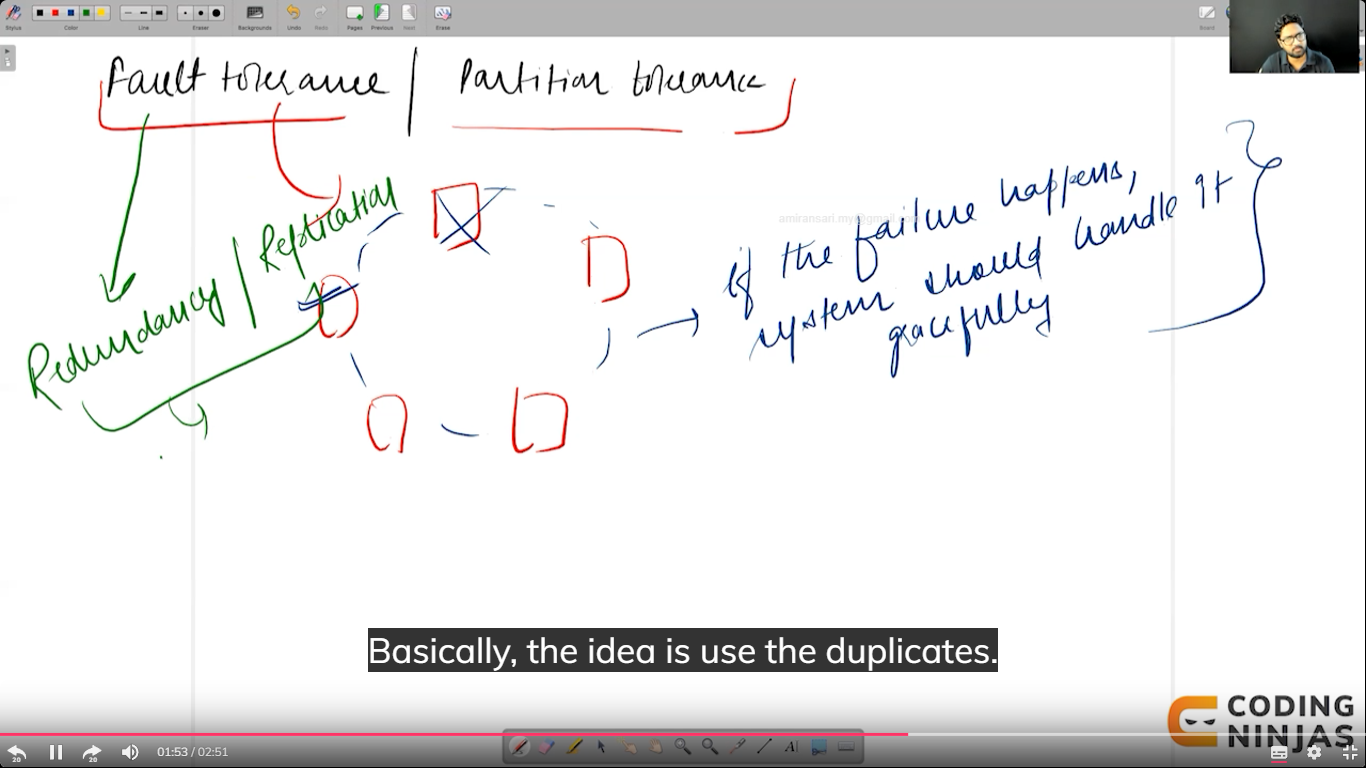 Stylus
Color
Line
Eraser
Backgrounds
Undo
Redo
Pages
Previous
Next
Erase
Board
Fault tolerance | Partition tolerance
Redundancy / Replication
if the failure happens,
system should handle it
gracefully
Basically, the idea is use the duplicates.
CODING
NINJAS
20
20
01:53 / 02:51